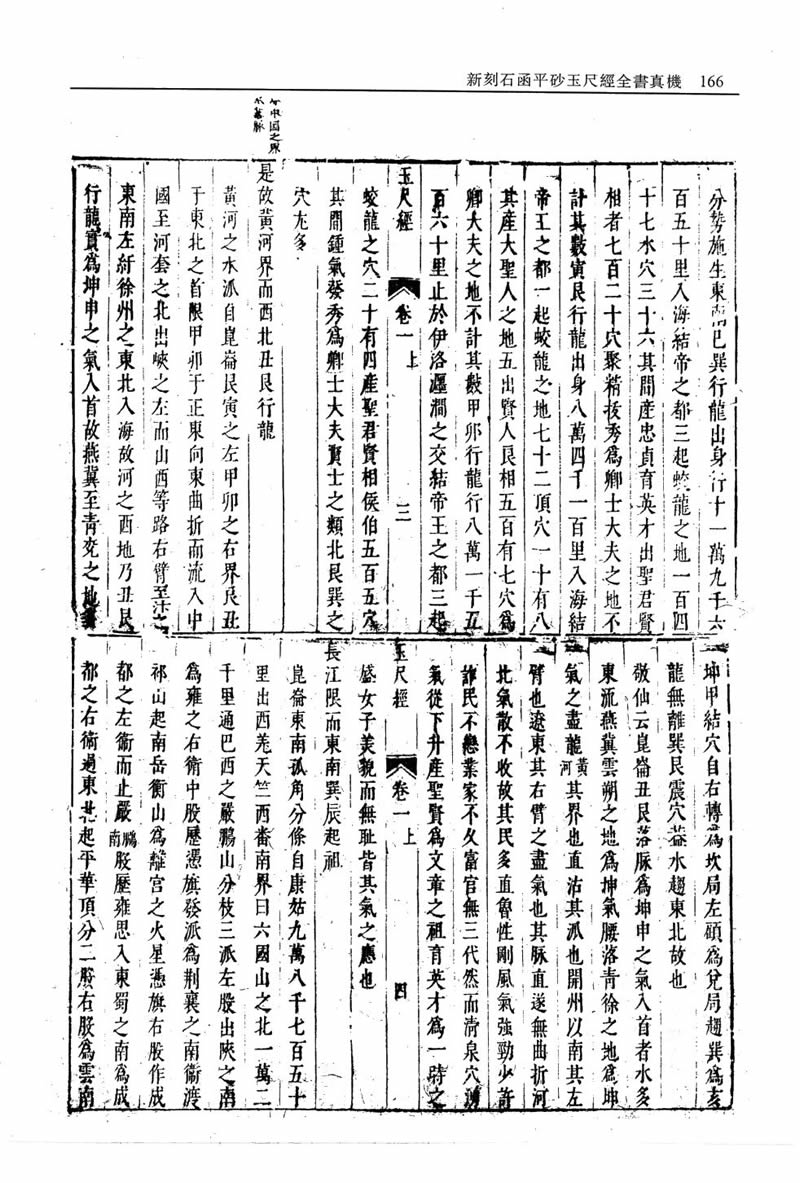 新刻石函平砂玉尺經全書真機 166
中國之界
分勢施生東南巳巽行龍出身行十一萬九千六
百五十里入海結帝之都三起蛟龍之地一百四
十七水穴三十六其間產忠貞育英才出聖君賢
相者七百二十穴聚精抜秀為卿士大夫之地不
計其數寅艮行龍出身八萬四千一百里入海結
帝王之都一起蛟龍之地七十二頂穴一十有八
其產大聖人之地五出賢人艮相五百有七穴為
卿大夫之地不計其數甲卯行龍行八萬一千五
百六十里止於伊洛瀍澗之交結帝王之都三起
玉尺經 卷一上 三
蛟龍之穴二十有四產聖君賢相侯伯五百五穴
其間鍾氣發秀為卿士大夫賢士之類北艮巽之
穴尤多
是故黃河界而西北丑艮行龍
黃河之水派自崑崙艮寅之左甲卯之右界艮丑
于東北之首限甲卯于正東向東曲折而流入中
國至河套之北出峽之左而山西等路右臂至汴之
東南左紆徐州之東北入海故河之西地乃丑艮
行龍實為坤申之氣入首故燕冀至青兗之地
坤甲結穴自右轉為坎局左頋為兌局趨巽為亥
龍無離巽艮震穴葢水趨東北故也
敬仙云崑崙丑艮落脉為坤申之氣入首者水多
東流燕冀雲朔之地為坤氣腰落青徐之地為坤
氣之盡龍黃河其界也直沽其派也開州以南其左
臂也遼東其右臂之盡氣也其脉直遂無曲折河
北氣散不收故其民多直魯性剛風氣強勁少許
詐民不戀業家不久富官無三代然而清泉穴湧
氣從下升產聖賢為文章之祖育英才為一時之
玉尺經 卷一上 四
盛女子美貌而無耻皆其氣之應也
長江限而東南巽辰起祖
崑崙東南孤角分條自康姑九萬八千七百五十
里出西羌天竺西番南界曰六國山之北一萬二
千里通巴西之嚴鵬山分枝三派左股出陝之南
為雍之右衛中股歷憑旗發派為荆襄之南衛渡
祁山起南岳衡山為離宮之火星憑旗右股作成
都之左衛而止嚴鵬南股歷雍思入東蜀之南為成
都之右衛過東北起平華頂分二股右股為雲南